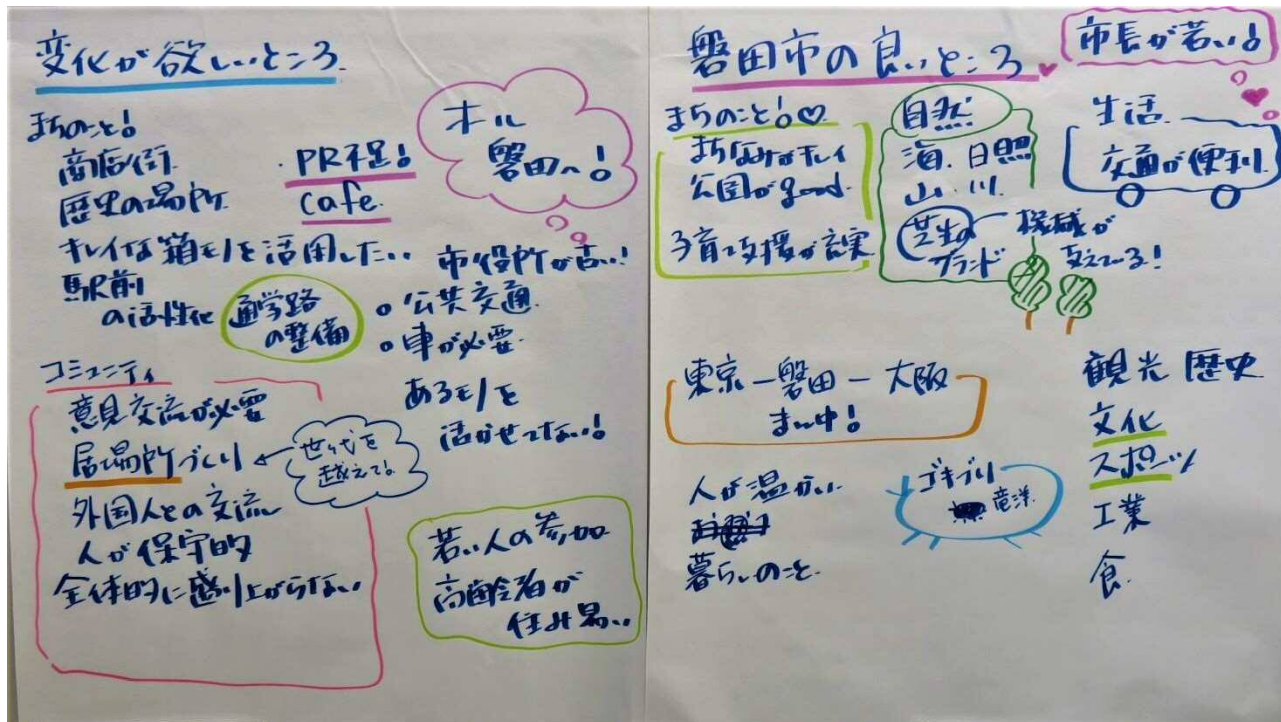 変化が欲しいところ
まちのこと!
商店街
歴史の場所
・PR不足!
cafe
キレイな箱モノを活用したい
駅前
の活性化
通学路
の整備
オール
磐田へ!
市役所が古い!
○公共交通
○車が必要
あるモノを
活かせてない!
コミュニティ
意見交流が必要
居場所づくり
世代を
越えて!
外国人との交流
人が保守的
全体的に盛り上がらない
若い人の参加
高齢者が
住み易い
磐田市の良いところ
市長が若い!
まちのこと!
まちなみがキレイ
公園がgood
子育て支援が充実
自然
海、日照
山、川
芝生の
ブランド
機械が
支えている!
生活
交通が便利
東京ー磐田ー大阪
まん中!
人が温かい
暮らしのこと
ゴキブリ
竜洋
観光 歴史
文化
スポーツ
工業
食